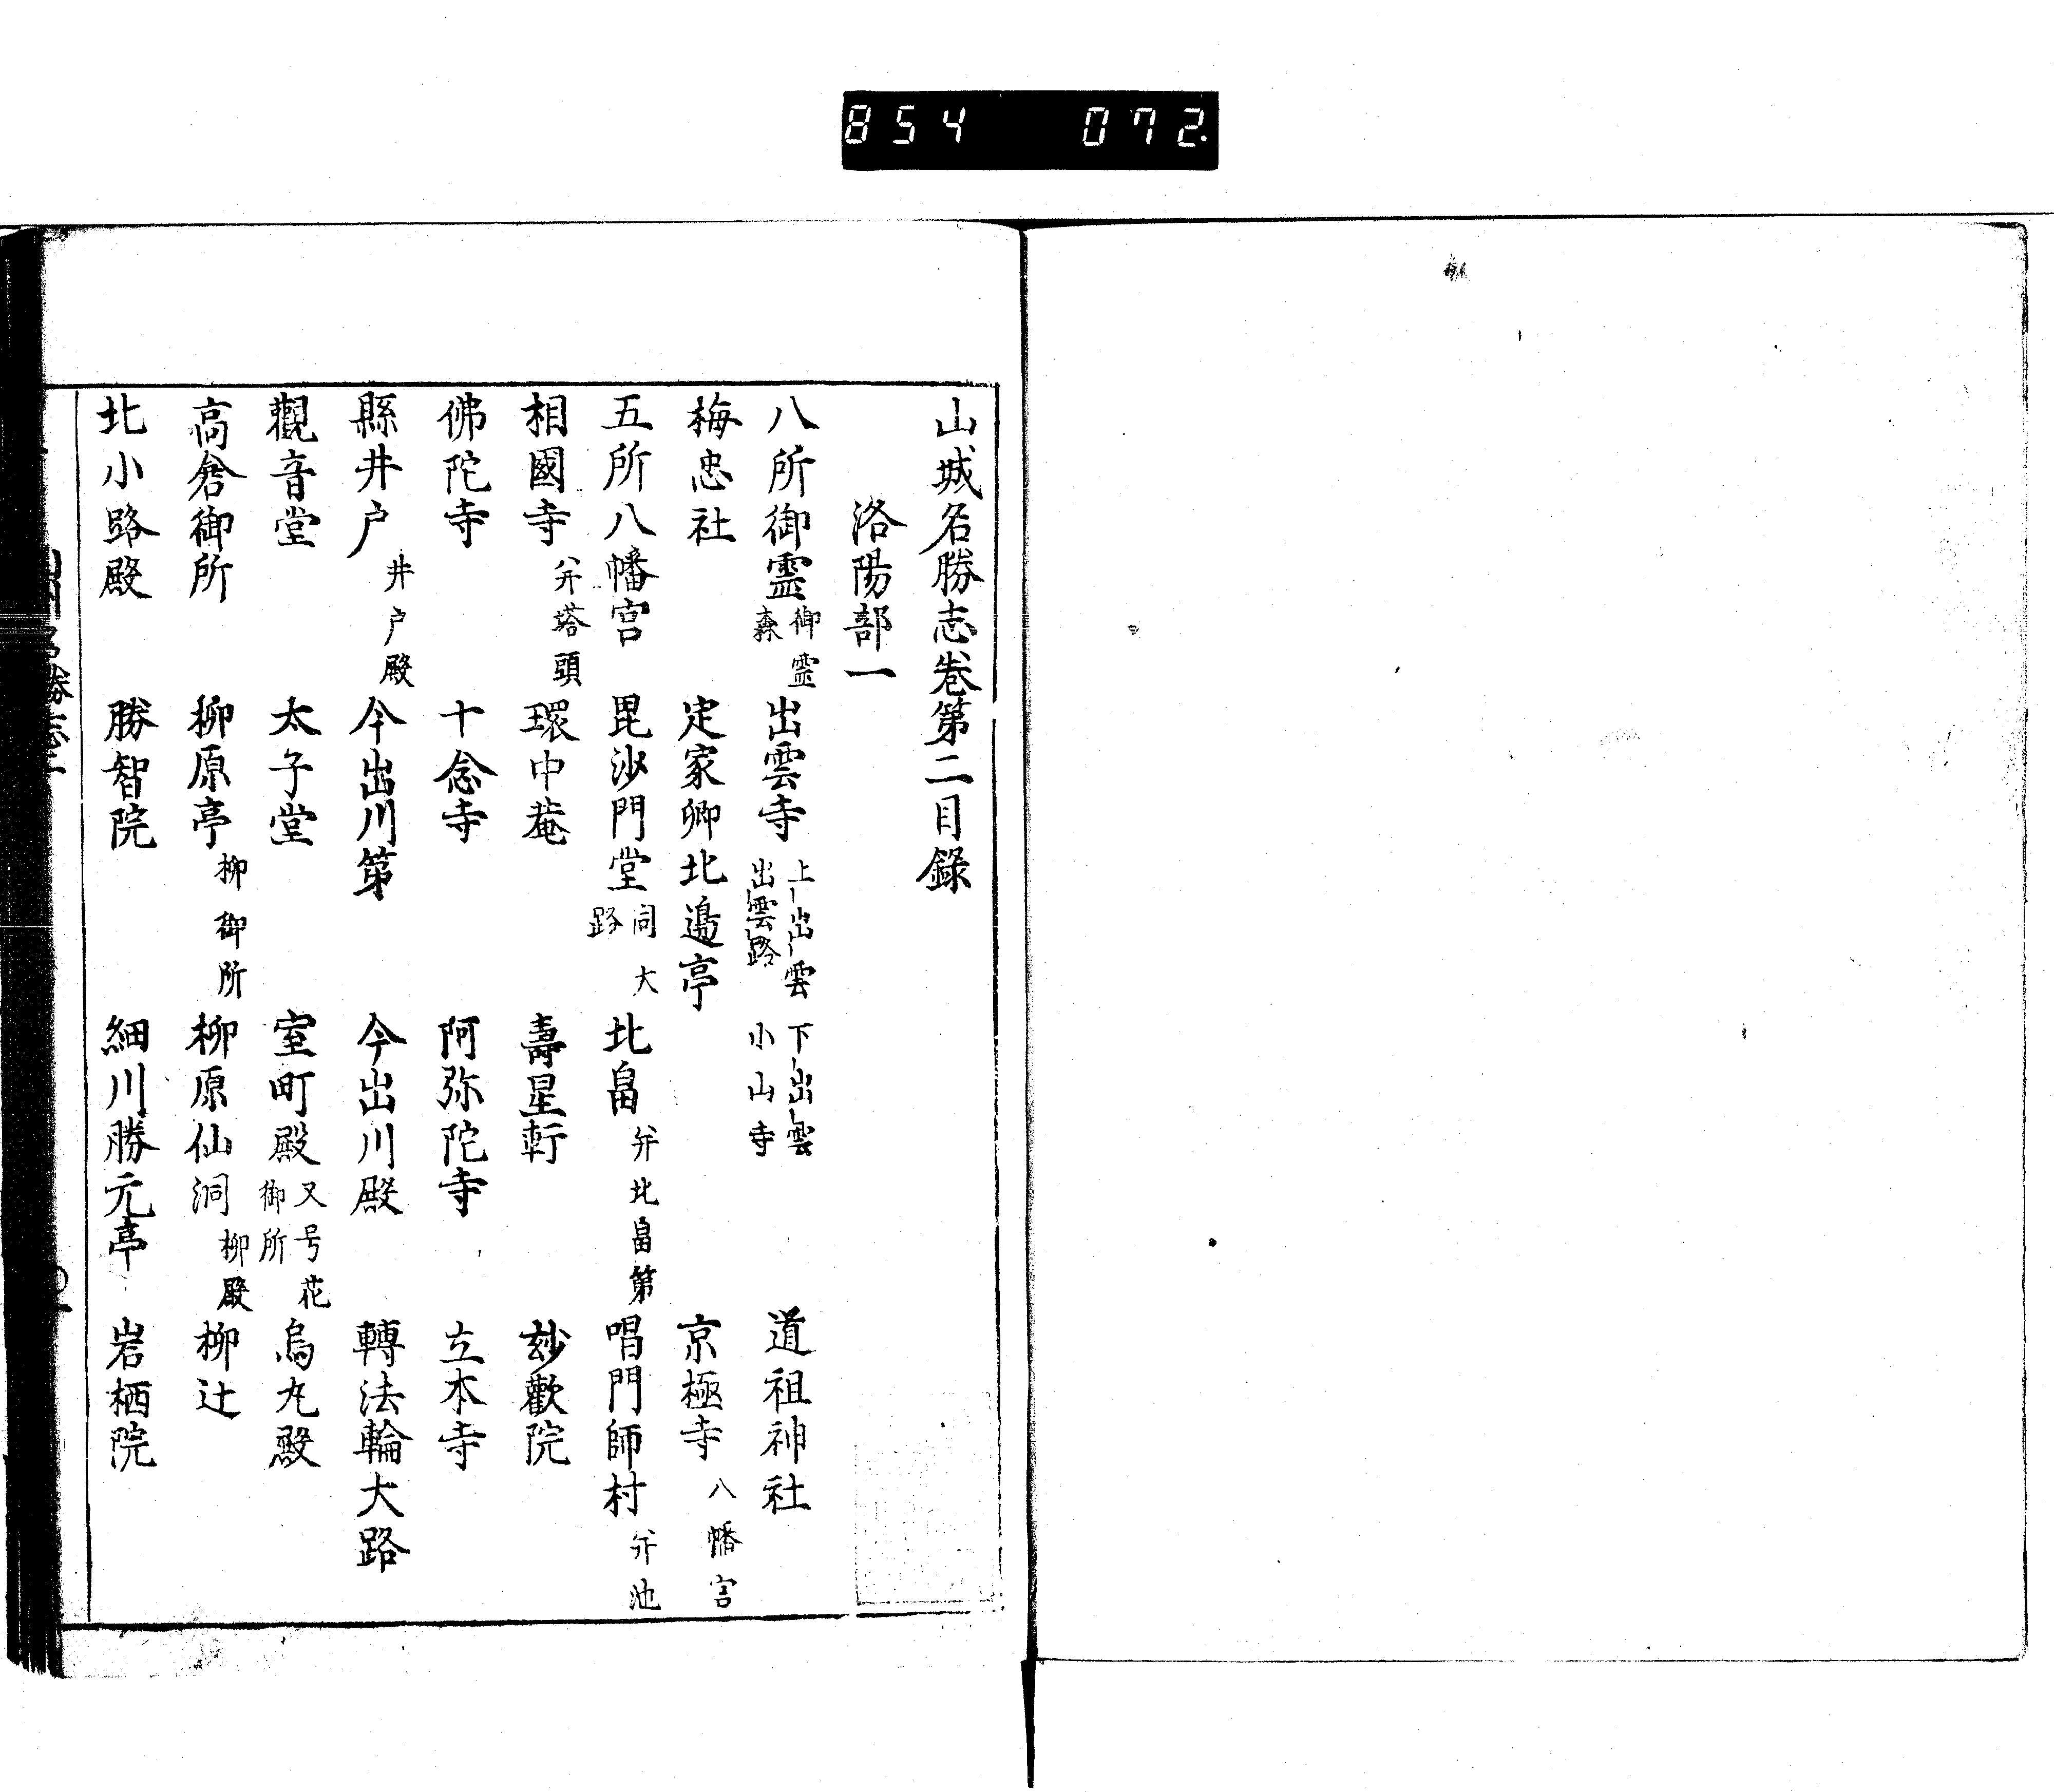 854 072
山城名勝志卷第二目錄
洛陽部一
八所御霊 御霊森 出雲寺 上出雲 下出雲 出雲路 小山寺 道祖神社
梅忠社 定家卿北邉亭 京極寺 八幡宮
五所八幡宮 毘沙門堂 同大路 北畠 并北畠第 唱門師村 并池
相國寺 并塔頭 環中菴 壽星軒 玅歡院
佛陀寺 十念寺 阿弥陀寺 立本寺
縣井戸 井戸殿 今出川第 今出川殿 轉法輪大路
觀音堂 太子堂 室町殿 又号花御所 烏丸殿
高倉御所 柳原亭 柳御所 柳原仙洞 柳殿 柳辻
北小路殿 勝智院 細川勝元亭 岩栖院